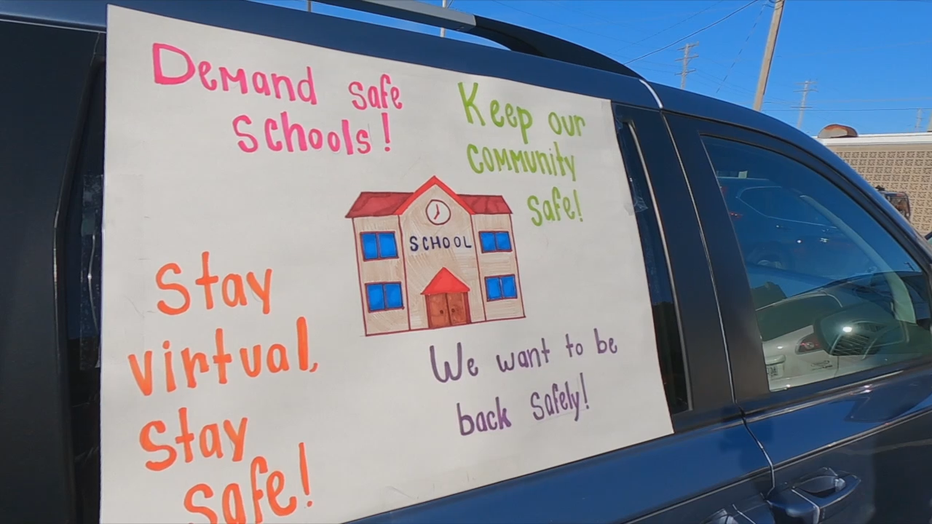 Demand safe
Schools!
Keep our
community
safe!
SCHOOL
Stay
virtual,
Stay
safe!
We want to be
back safely!